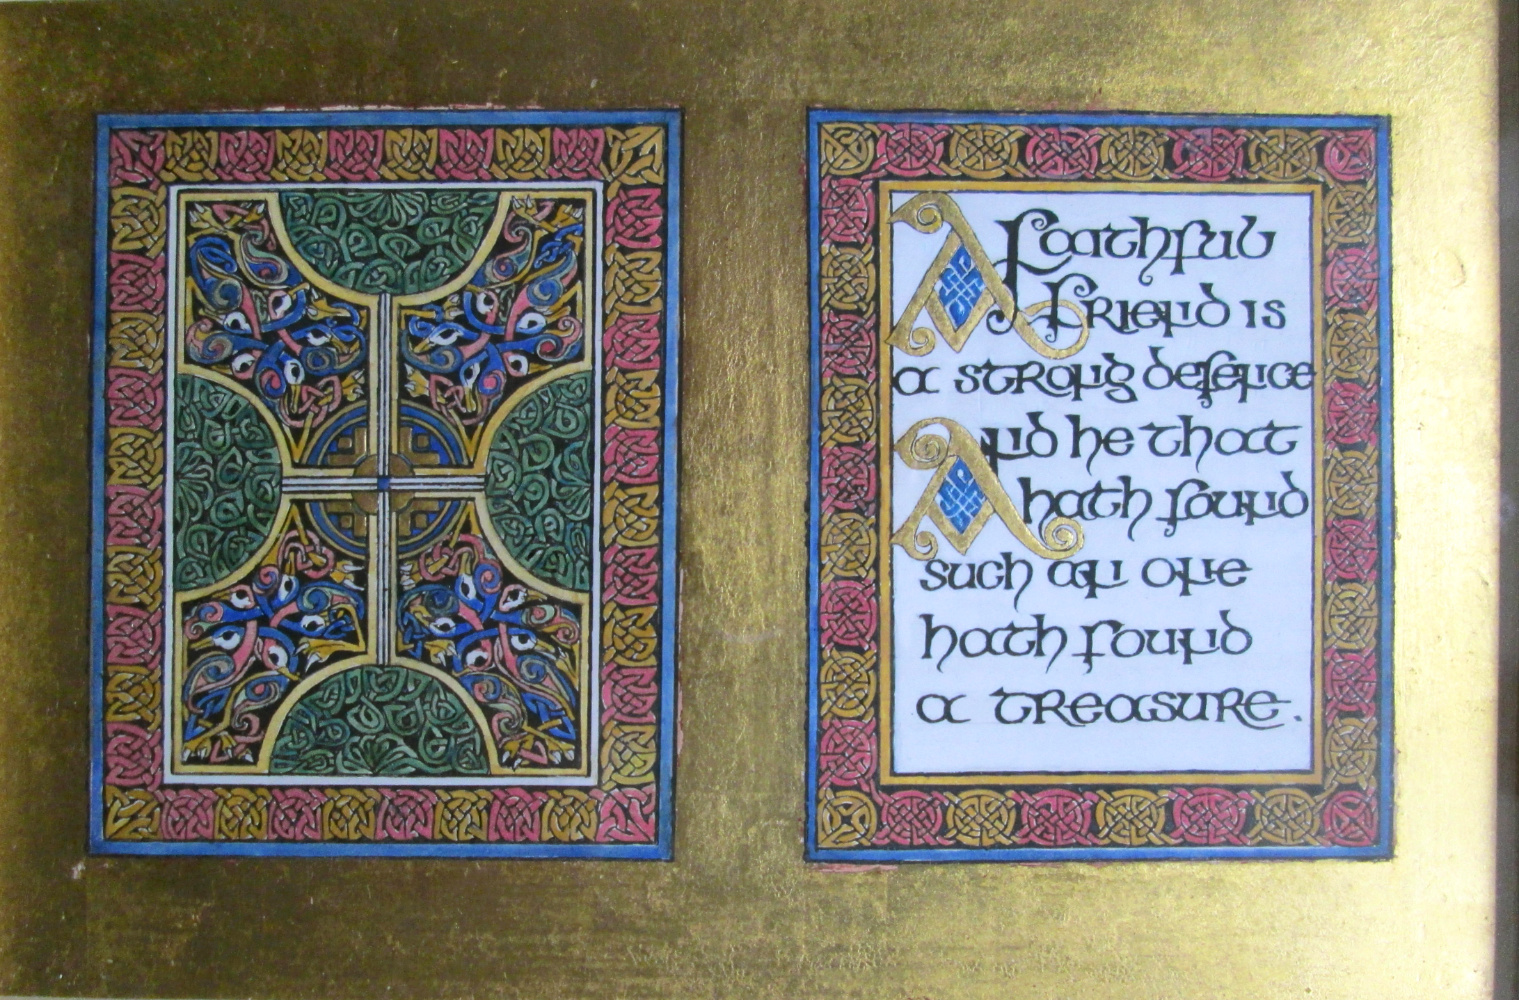 A Faithful
Friend is
a strong defence
And he that
hath found
such an one
hath found
a treasure.